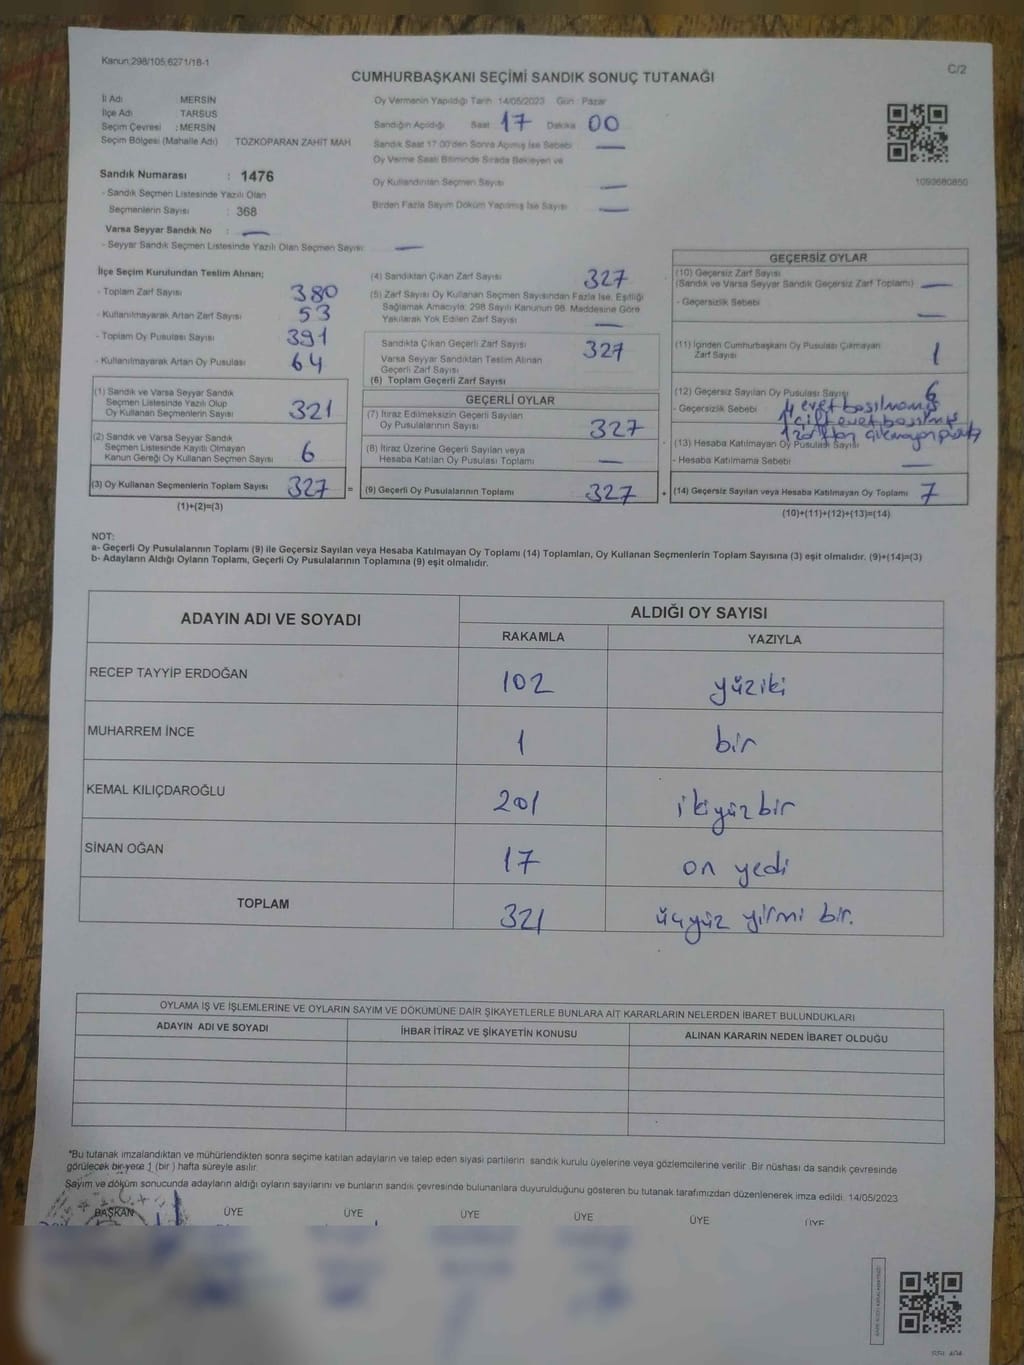 Kanun:298/105,6271/18-1
C/2
CUMHURBAŞKANI SEÇİMİ SANDIK SONUÇ TUTANAĞI
İl Adı MERSİN
İlçe Adı TARSUS
Seçim Çevresi : MERSİN
Seçim Bölgesi (Mahalle Adı) TOZKOPARAN ZAHİT MAH
Sandık Numarası : 1476
- Sandık Seçmen Listesinde Yazılı Olan
Seçmenlerin Sayısı : 368
Varsa Seyyar Sandık No : —
- Seyyar Sandık Seçmen Listesinde Yazılı Olan Seçmen Sayısı —
Oy Vermenin Yapıldığı Tarih 14/05/2023 Gün Pazar
Sandığın Açıldığı Saat 17 Dakika 00
Sandık Saat 17:00'den Sonra Açılmış İse Sebebi —
Oy Verme Saati Bitiminde Sırada Bekleyen ve
Oy Kullandırılan Seçmen Sayısı —
Birden Fazla Sayım Döküm Yapılmış İse Sayısı —
1093680850
İlçe Seçim Kurulundan Teslim Alınan;
- Toplam Zarf Sayısı 380
- Kullanılmayarak Artan Zarf Sayısı 53
- Toplam Oy Pusulası Sayısı 391
- Kullanılmayarak Artan Oy Pusulası 64
(1) Sandık ve Varsa Seyyar Sandık
Seçmen Listesinde Yazılı Olup
Oy Kullanan Seçmenlerin Sayısı 321
(2) Sandık ve Varsa Seyyar Sandık
Seçmen Listesinde Kayıtlı Olmayan
Kanun Gereği Oy Kullanan Seçmen Sayısı 6
(3) Oy Kullanan Seçmenlerin Toplam Sayısı 327 =
(1)+(2)=(3)
(4) Sandıktan Çıkan Zarf Sayısı 327
(5) Zarf Sayısı Oy Kullanan Seçmen Sayısından Fazla İse, Eşitliği
Sağlamak Amacıyla; 298 Sayılı Kanunun 98. Maddesine Göre
Yakılarak Yok Edilen Zarf Sayısı —
Sandıkta Çıkan Geçerli Zarf Sayısı 327
Varsa Seyyar Sandıktan Teslim Alınan
Geçerli Zarf Sayısı
(6) Toplam Geçerli Zarf Sayısı
GEÇERLİ OYLAR
(7) İtiraz Edilmeksizin Geçerli Sayılan
Oy Pusulalarının Sayısı 327
(8) İtiraz Üzerine Geçerli Sayılan veya
Hesaba Katılan Oy Pusulası Toplamı —
(9) Geçerli Oy Pusulalarının Toplamı 327 +
GEÇERSİZ OYLAR
(10) Geçersiz Zarf Sayısı
(Sandık ve Varsa Seyyar Sandık Geçersiz Zarf Toplamı) —
- Geçersizlik Sebebi —
(11) İçinden Cumhurbaşkanı Oy Pusulası Çıkmayan
Zarf Sayısı 1
(12) Geçersiz Sayılan Oy Pusulası Sayısı 6
- Geçersizlik Sebebi 4 evet basılmamış
1 çift evet basılmış
1 zarftan çıkmayan
(13) Hesaba Katılmayan Oy Pusulası Sayısı
- Hesaba Katılmama Sebebi —
(14) Geçersiz Sayılan veya Hesaba Katılmayan Oy Toplamı 7
(10)+(11)+(12)+(13)=(14)
NOT:
a- Geçerli Oy Pusulalarının Toplamı (9) ile Geçersiz Sayılan veya Hesaba Katılmayan Oy Toplamı (14) Toplamları, Oy Kullanan Seçmenlerin Toplam Sayısına (3) eşit olmalıdır. (9)+(14)=(3)
b- Adayların Aldığı Oyların Toplamı, Geçerli Oy Pusulalarının Toplamına (9) eşit olmalıdır.
ADAYIN ADI VE SOYADI ALDIĞI OY SAYISI
RAKAMLA YAZIYLA
RECEP TAYYİP ERDOĞAN 102 yüziki
MUHARREM İNCE 1 bir
KEMAL KILIÇDAROĞLU 201 ikiyüz bir
SİNAN OĞAN 17 on yedi
TOPLAM 321 üçyüz yirmi bir.
OYLAMA İŞ VE İŞLEMLERİNE VE OYLARIN SAYIM VE DÖKÜMÜNE DAİR ŞİKAYETLERLE BUNLARA AİT KARARLARIN NELERDEN İBARET BULUNDUKLARI
ADAYIN ADI VE SOYADI İHBAR İTİRAZ VE ŞİKAYETİN KONUSU ALINAN KARARIN NEDEN İBARET OLDUĞU
*Bu tutanak imzalandıktan ve mühürlendikten sonra seçime katılan adayların ve talep eden siyasi partilerin sandık kurulu üyelerine veya gözlemcilerine verilir. Bir nüshası da sandık çevresinde
görülecek bir yere 1 (bir) hafta süreyle asılır.
Sayım ve döküm sonucunda adayların aldığı oyların sayılarını ve bunların sandık çevresinde bulunanlara duyurulduğunu gösteren bu tutanak tarafımızdan düzenlenerek imza edildi. 14/05/2023
BAŞKAN ÜYE ÜYE ÜYE ÜYE ÜYE ÜYE